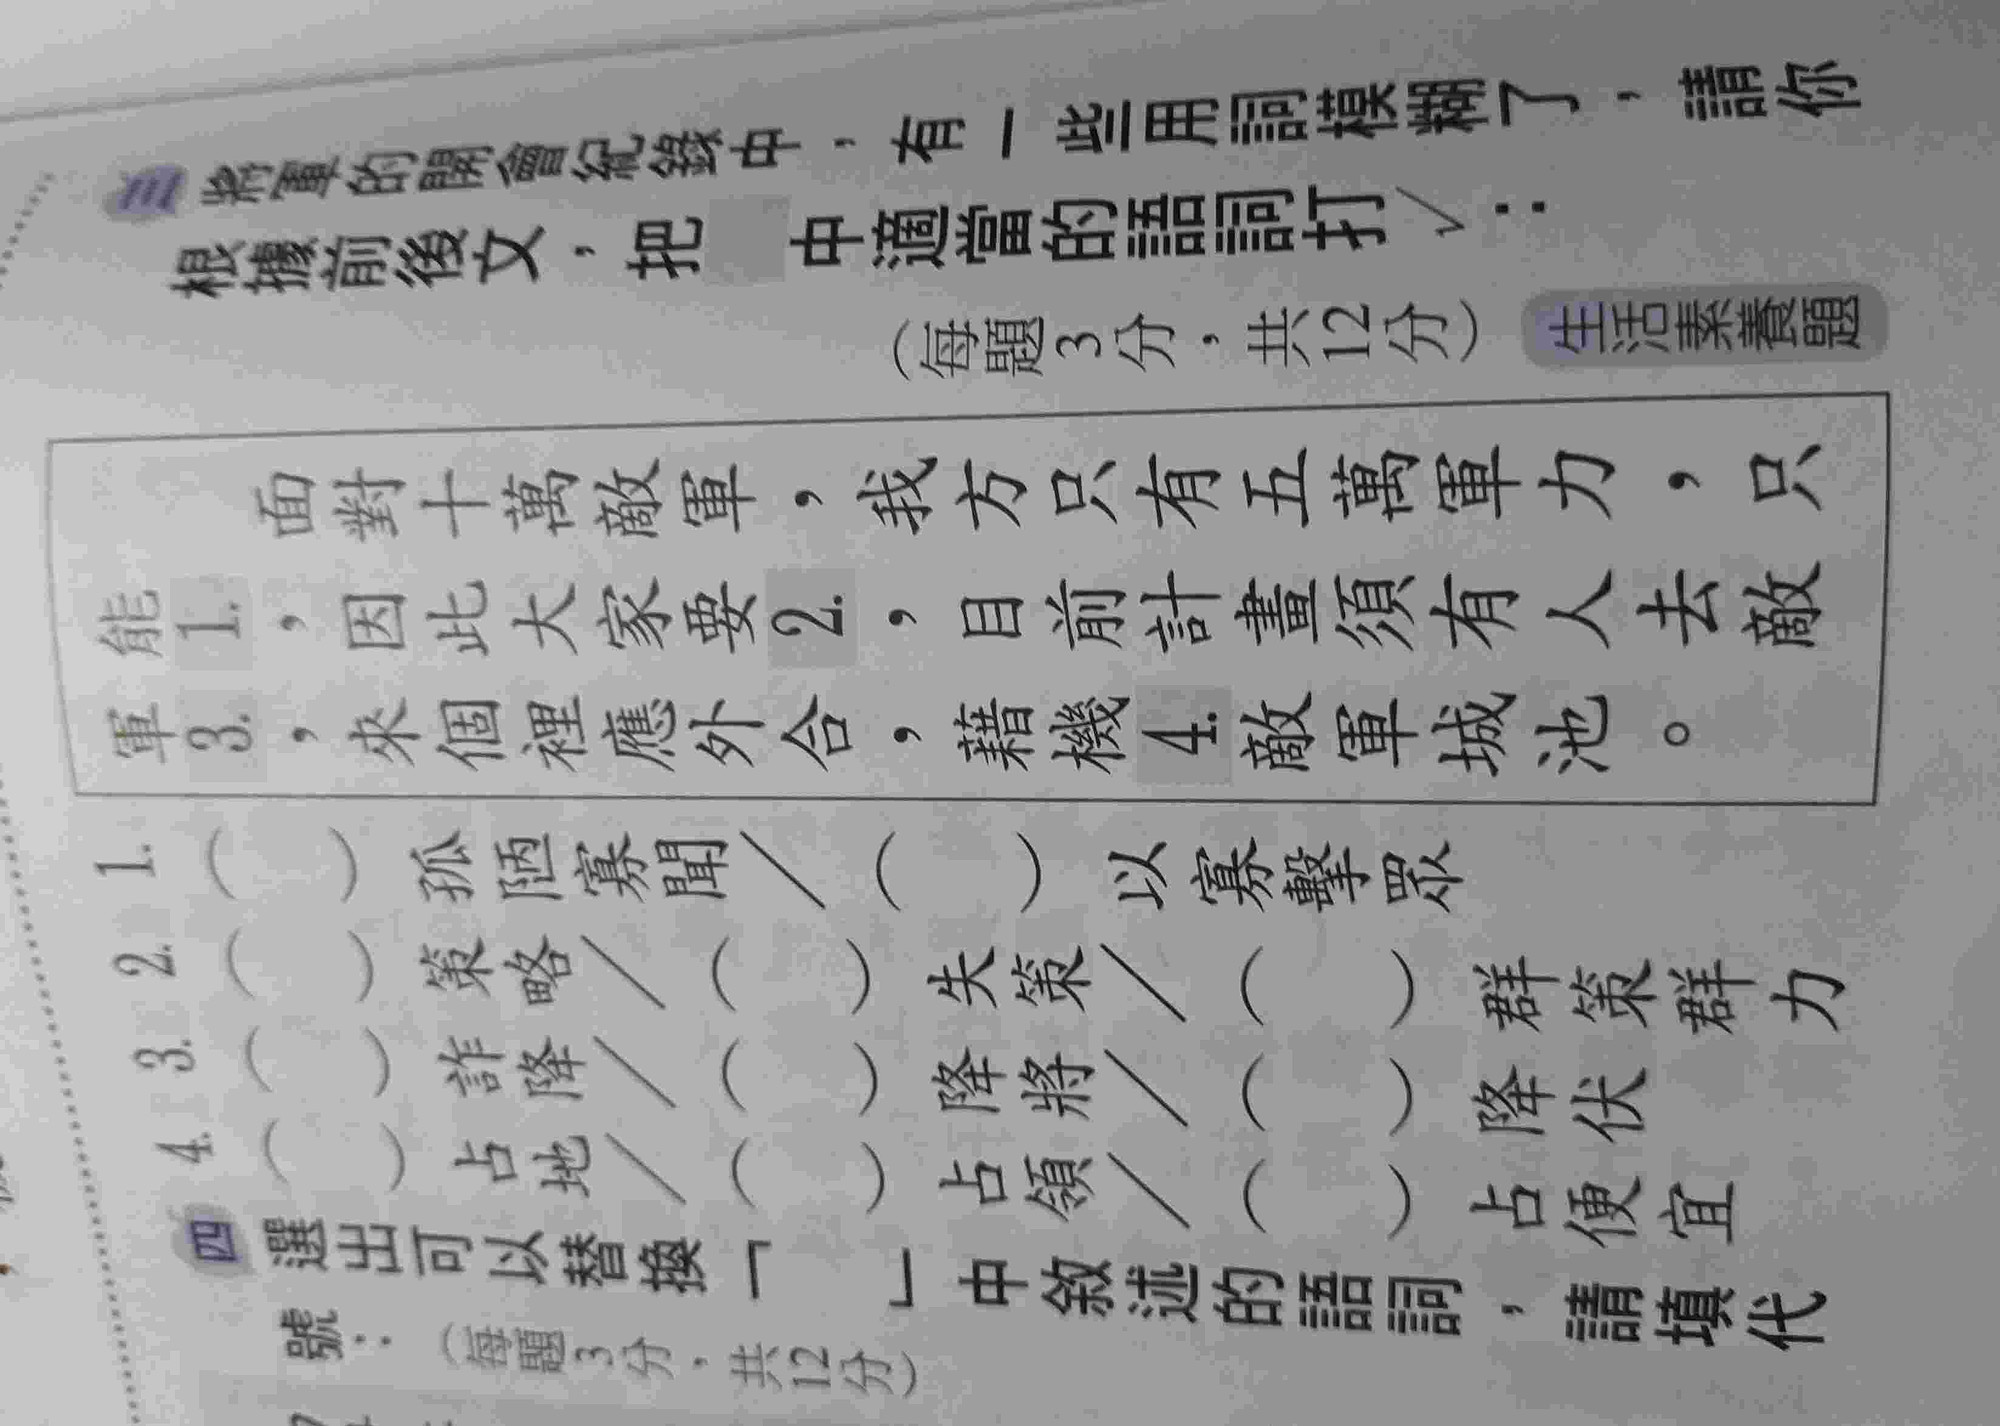 三 將軍的開會紀錄中，有一些用詞模糊了，請你
根據前後文，把　中適當的語詞打✓：
（每題3分，共12分） 生活素養題
面對十萬敵軍，我方只有五萬軍力，只
能1.，因此大家要2.，目前計畫須有人去敵
軍3.，來個裡應外合，藉機4.敵軍城池。
1.（　）孤陋寡聞╱（　）以寡擊眾
2.（　）策略╱（　）失策╱（　）群策群力
3.（　）詐降╱（　）降將╱（　）降伏
4.（　）占地╱（　）占領╱（　）占便宜
四 選出可以替換「　」中敘述的語詞，請填代
號：（每題3分，共12分）